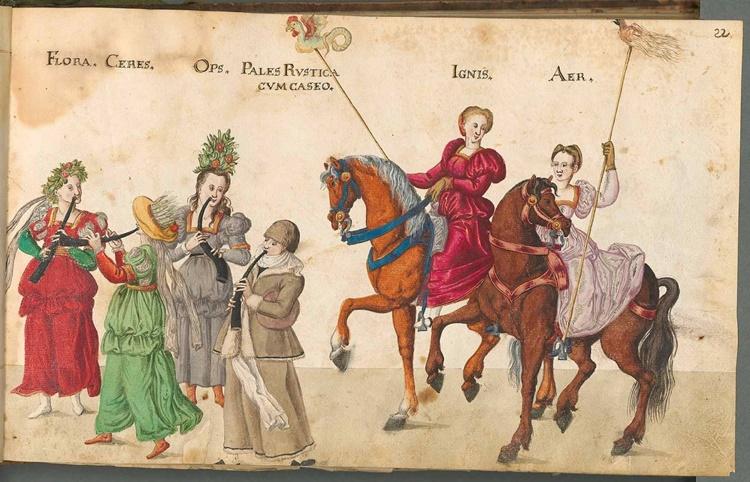 22
FLORA. CERES. OPS. PALES RVSTICA
CVM CASEO.
IGNIS. AER.